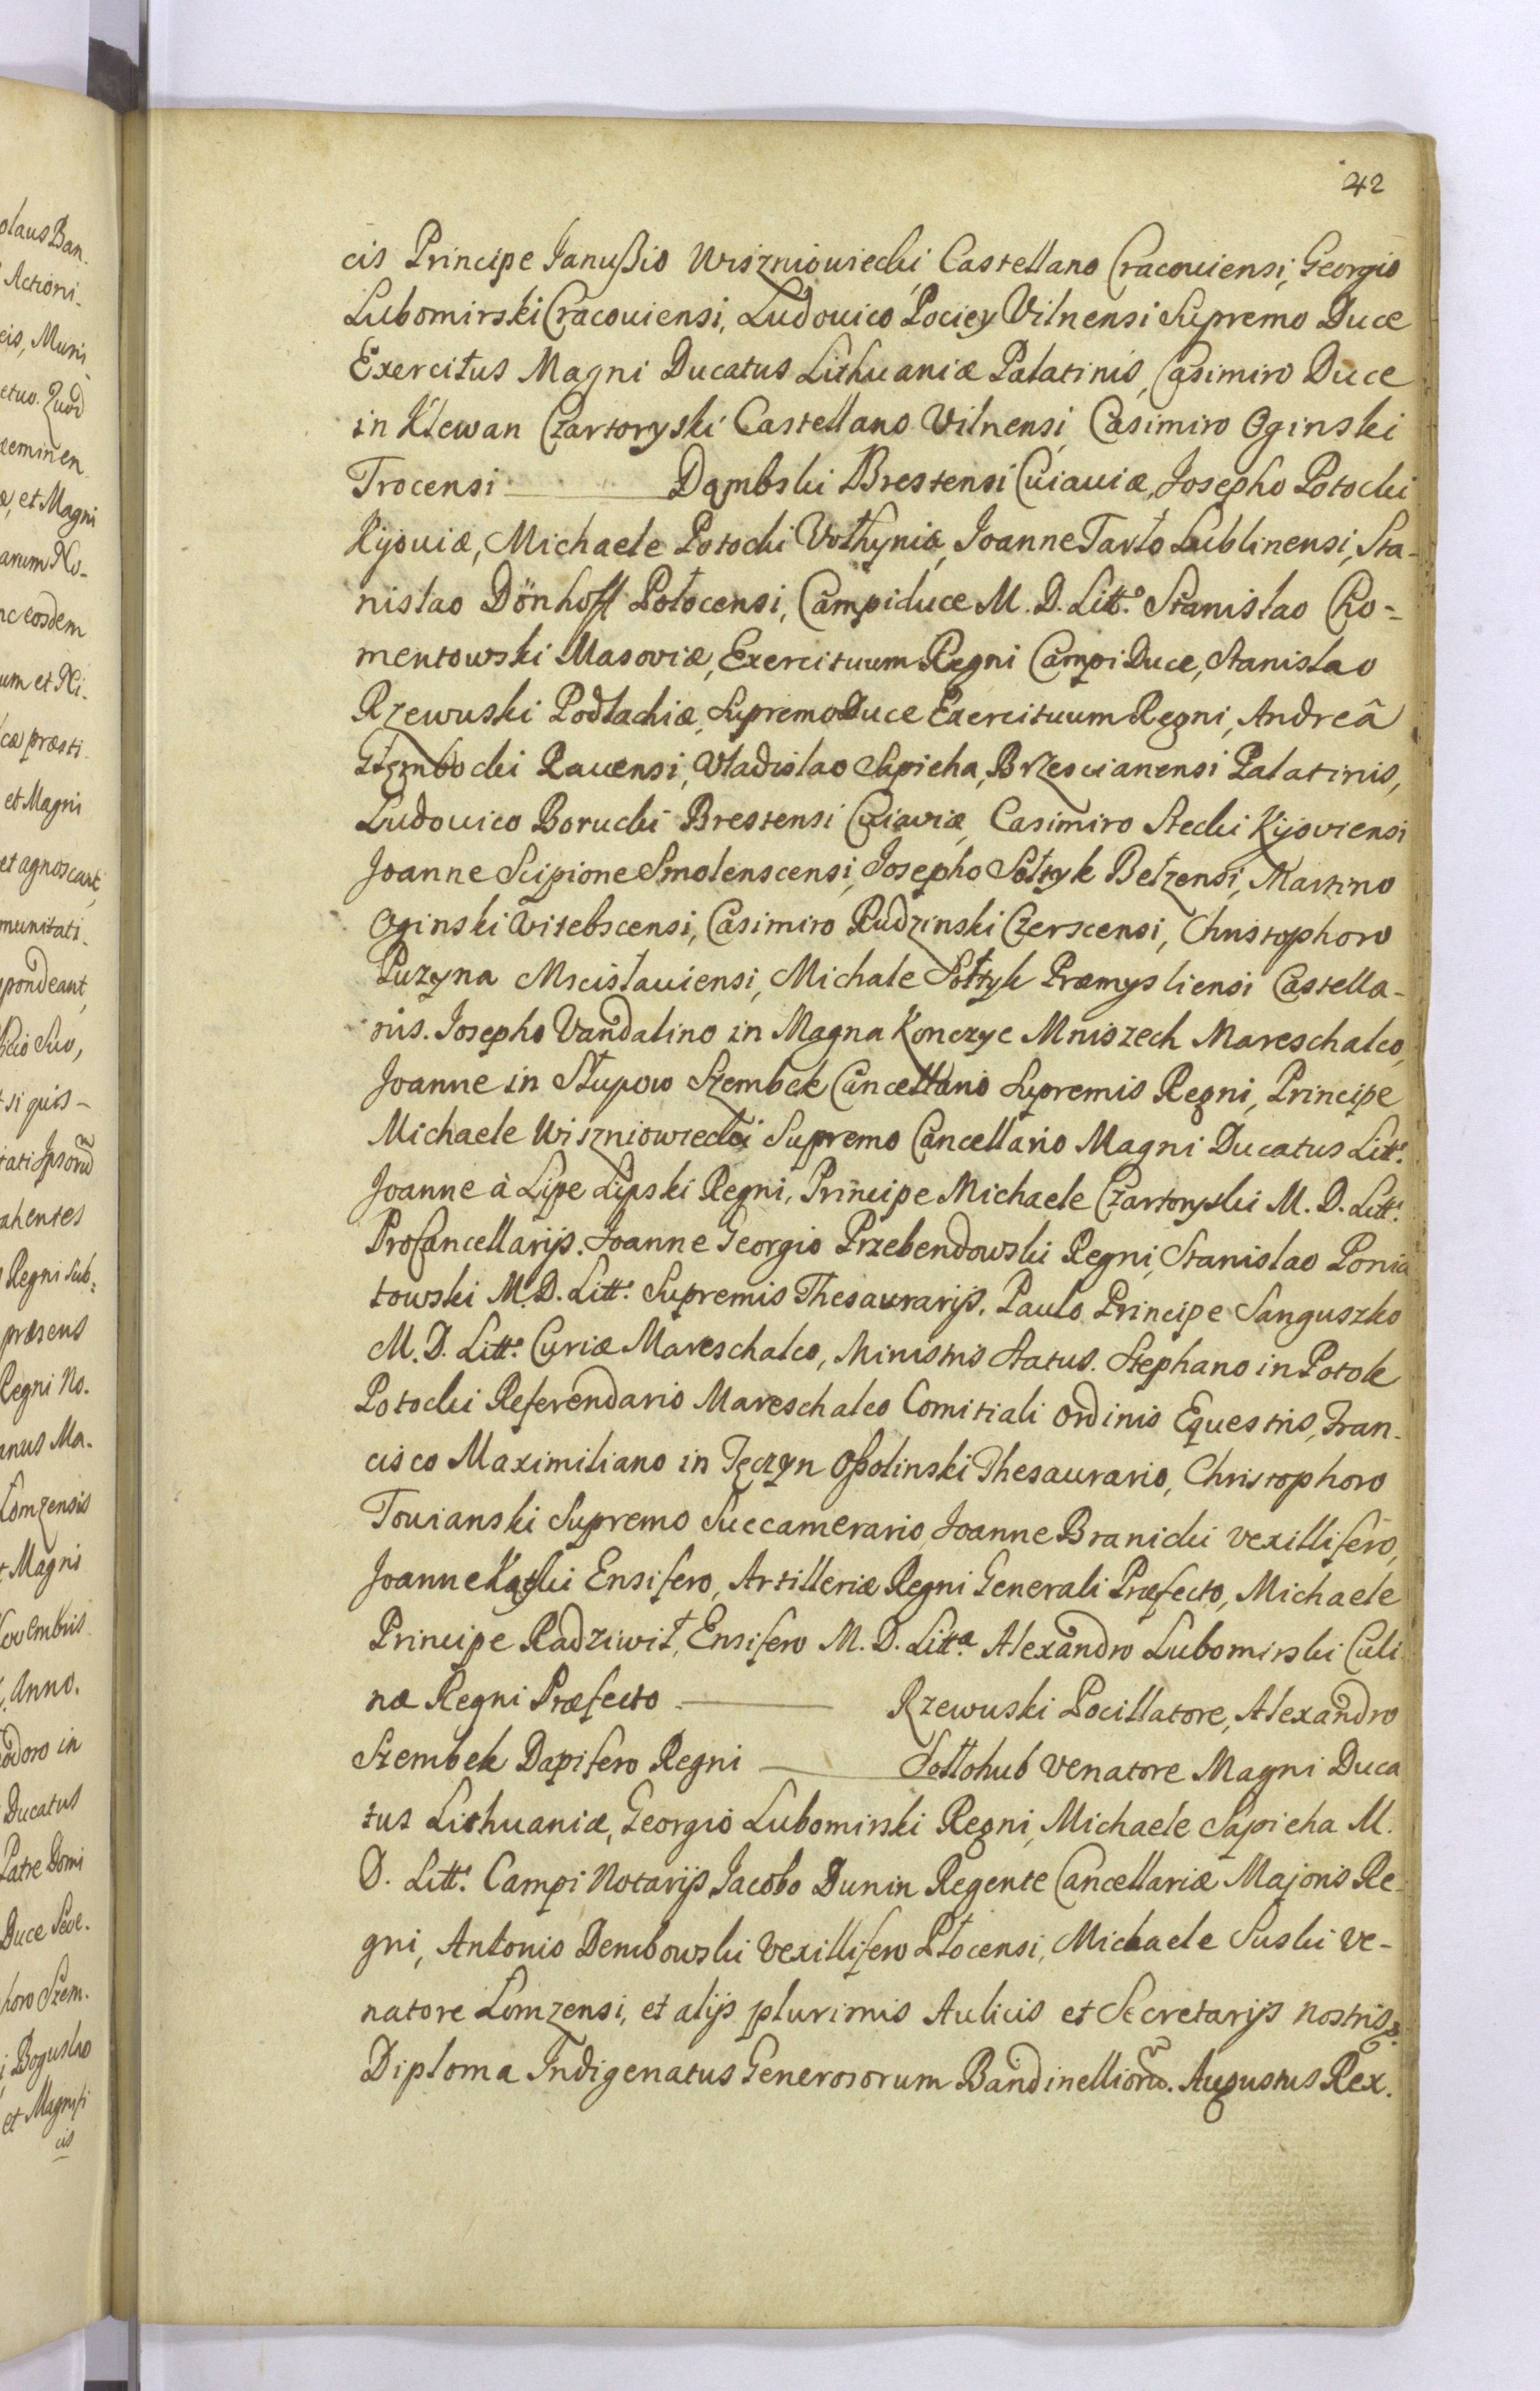 42
cis Principe Januſzio Wiszniowiecki, Castellano Cracouiensi, Georgio
Lubomirski Cracouiensi, Ludouico Pociey Vilnensi Supremo Duce
Exercitus Magni Ducatus Lithuaniæ Palatinis, Casimiro Duce
in Klewan Czartoryski Castellano Vilnensi, Casimiro Oginski
Trocensi ——— Dąmbski Brestensi Cuiauiæ, Josepho Potocki
Kijouiæ, Michaele Potocki Wołhyniæ, Joanne Tarło Lublinensi, Sta-
nislao Dönhoff Połocensi, Campiduce M. D. Litt: Stanislao Cho-
mentowski Masoviæ, Exercituum Regni Campi Duce, Stanislao
Rzewuski Podlachiæ, Supremo Duce Exercituum Regni, Andreâ
Głęmbocki Rauensi, Vladislao Sapieha, Brzescianensi Palatinis,
Ludouico Borucki Brestensi Cuiaviæ, Casimiro Stecki Kijoviensi
Joanne Scipione Smolenscensi, Josepho Sołtyk Betzensi, Martino
Oginski Vitebscensi, Casimiro Rudzinski Czerscensi, Christophoro
Puzyna Mscislauiensi, Michale Sołtyk Præmysliensi Castella-
nis. Josepho Vandalino in Magna Konczyc Mniszech Mareschalco,
Joanne in Słupow Szembek Cancellario Supremis Regni, Principe
Michaele Wiszniowiecki Supremo Cancellario Magni Ducatus Litt:
Joanne à Lipe Lipski Regni, Principe Michaele Czartoryski M. D. Litt:
Profancellarijs. Joanne Georgio Przebendowski Regni, Stanislao Ponia
towski M. D. Litt: Supremis Thesaurarijs. Paulo Principe Sanguszko
M. D. Litt: Curiæ Mareschalco, Ministris Status. Stephano in Potok
Potocki Referendario Mareschalco Comitiali Ordinis Equestris, Fran-
cisco Maximiliano in Tęczyn Oſsolinski Thesaurario, Christophoro
Touianski Supremo Succamerario, Joanne Branicki Vexillifero,
Joanne Kątski Ensifero, Artilleriæ Regni Generali Præfecto, Michaele
Principe Radziwił, Ensifero M. D. Litt:a Alexandro Lubomirski Culi
næ Regni Præfecto ——— Rzewuski Pocillatore, Alexandro
Szembek Dapifero Regni ——— Sołłohub Venatore Magni Duca
tus Lithuaniæ, Georgio Lubomirski Regni, Michaele Sapieha M.
D. Litt: Campi Notarijs Jacobo Dunin Regente Cancellariæ Majoris Re-
gni, Antonio Dembowski Vexillifero Płocensi, Michaele Suski Ve-
natore Łomzensi, et alijs plurimis Aulicis et Secretarijs nostris.
Diploma Indigenatus Generosorum Bandinellioru͂. Augustus Rex.